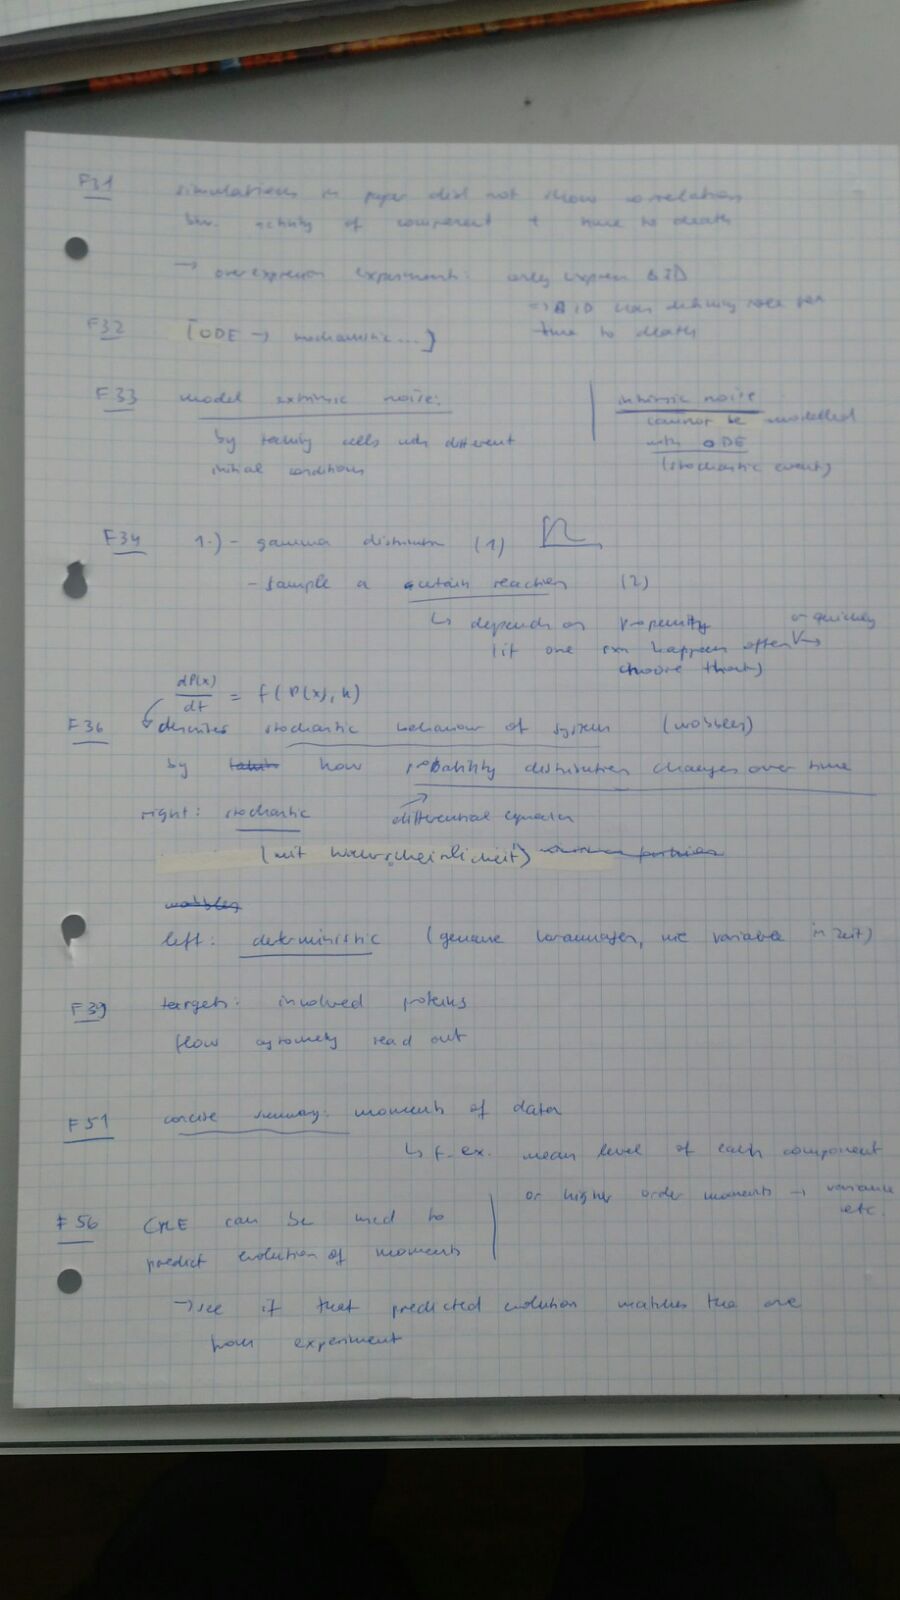 F31 simulations in paper did not show correlation
btw. activity of component + time to death
→ overexpression experiments: only express BID
=> BID has defining role for
time to death
F32 [ODE → mechanistic...]
F33 model extrinsic noise:
by taking cells with different
initial conditions
intrinsic noise
cannot be modelled
with ODE
(stochastic event)
F34 1.) - gamma distribution (1)
- sample a certain reaction (2)
↳ depends on propensity
(if one rxn happens often
choose that)
quickly
dP(x)/dt = f(P(x), k)
F36 describes stochastic behaviour of system (wobbles)
by how probability distribution changes over time
right: stochastic differential equation
(mit Wahrscheinlichkeit)
wobbles
left: deterministic (genaue Vorhersage, wie variable in Zeit)
F39 targets: involved proteins
flow cytometry read out
F51 concise summary: moments of data
↳ f. ex. mean level of each component
or higher order moments → variance
etc.
F56 CME can be used to
predict evolution of moments
→ see if that predicted evolution matches the one
from experiment